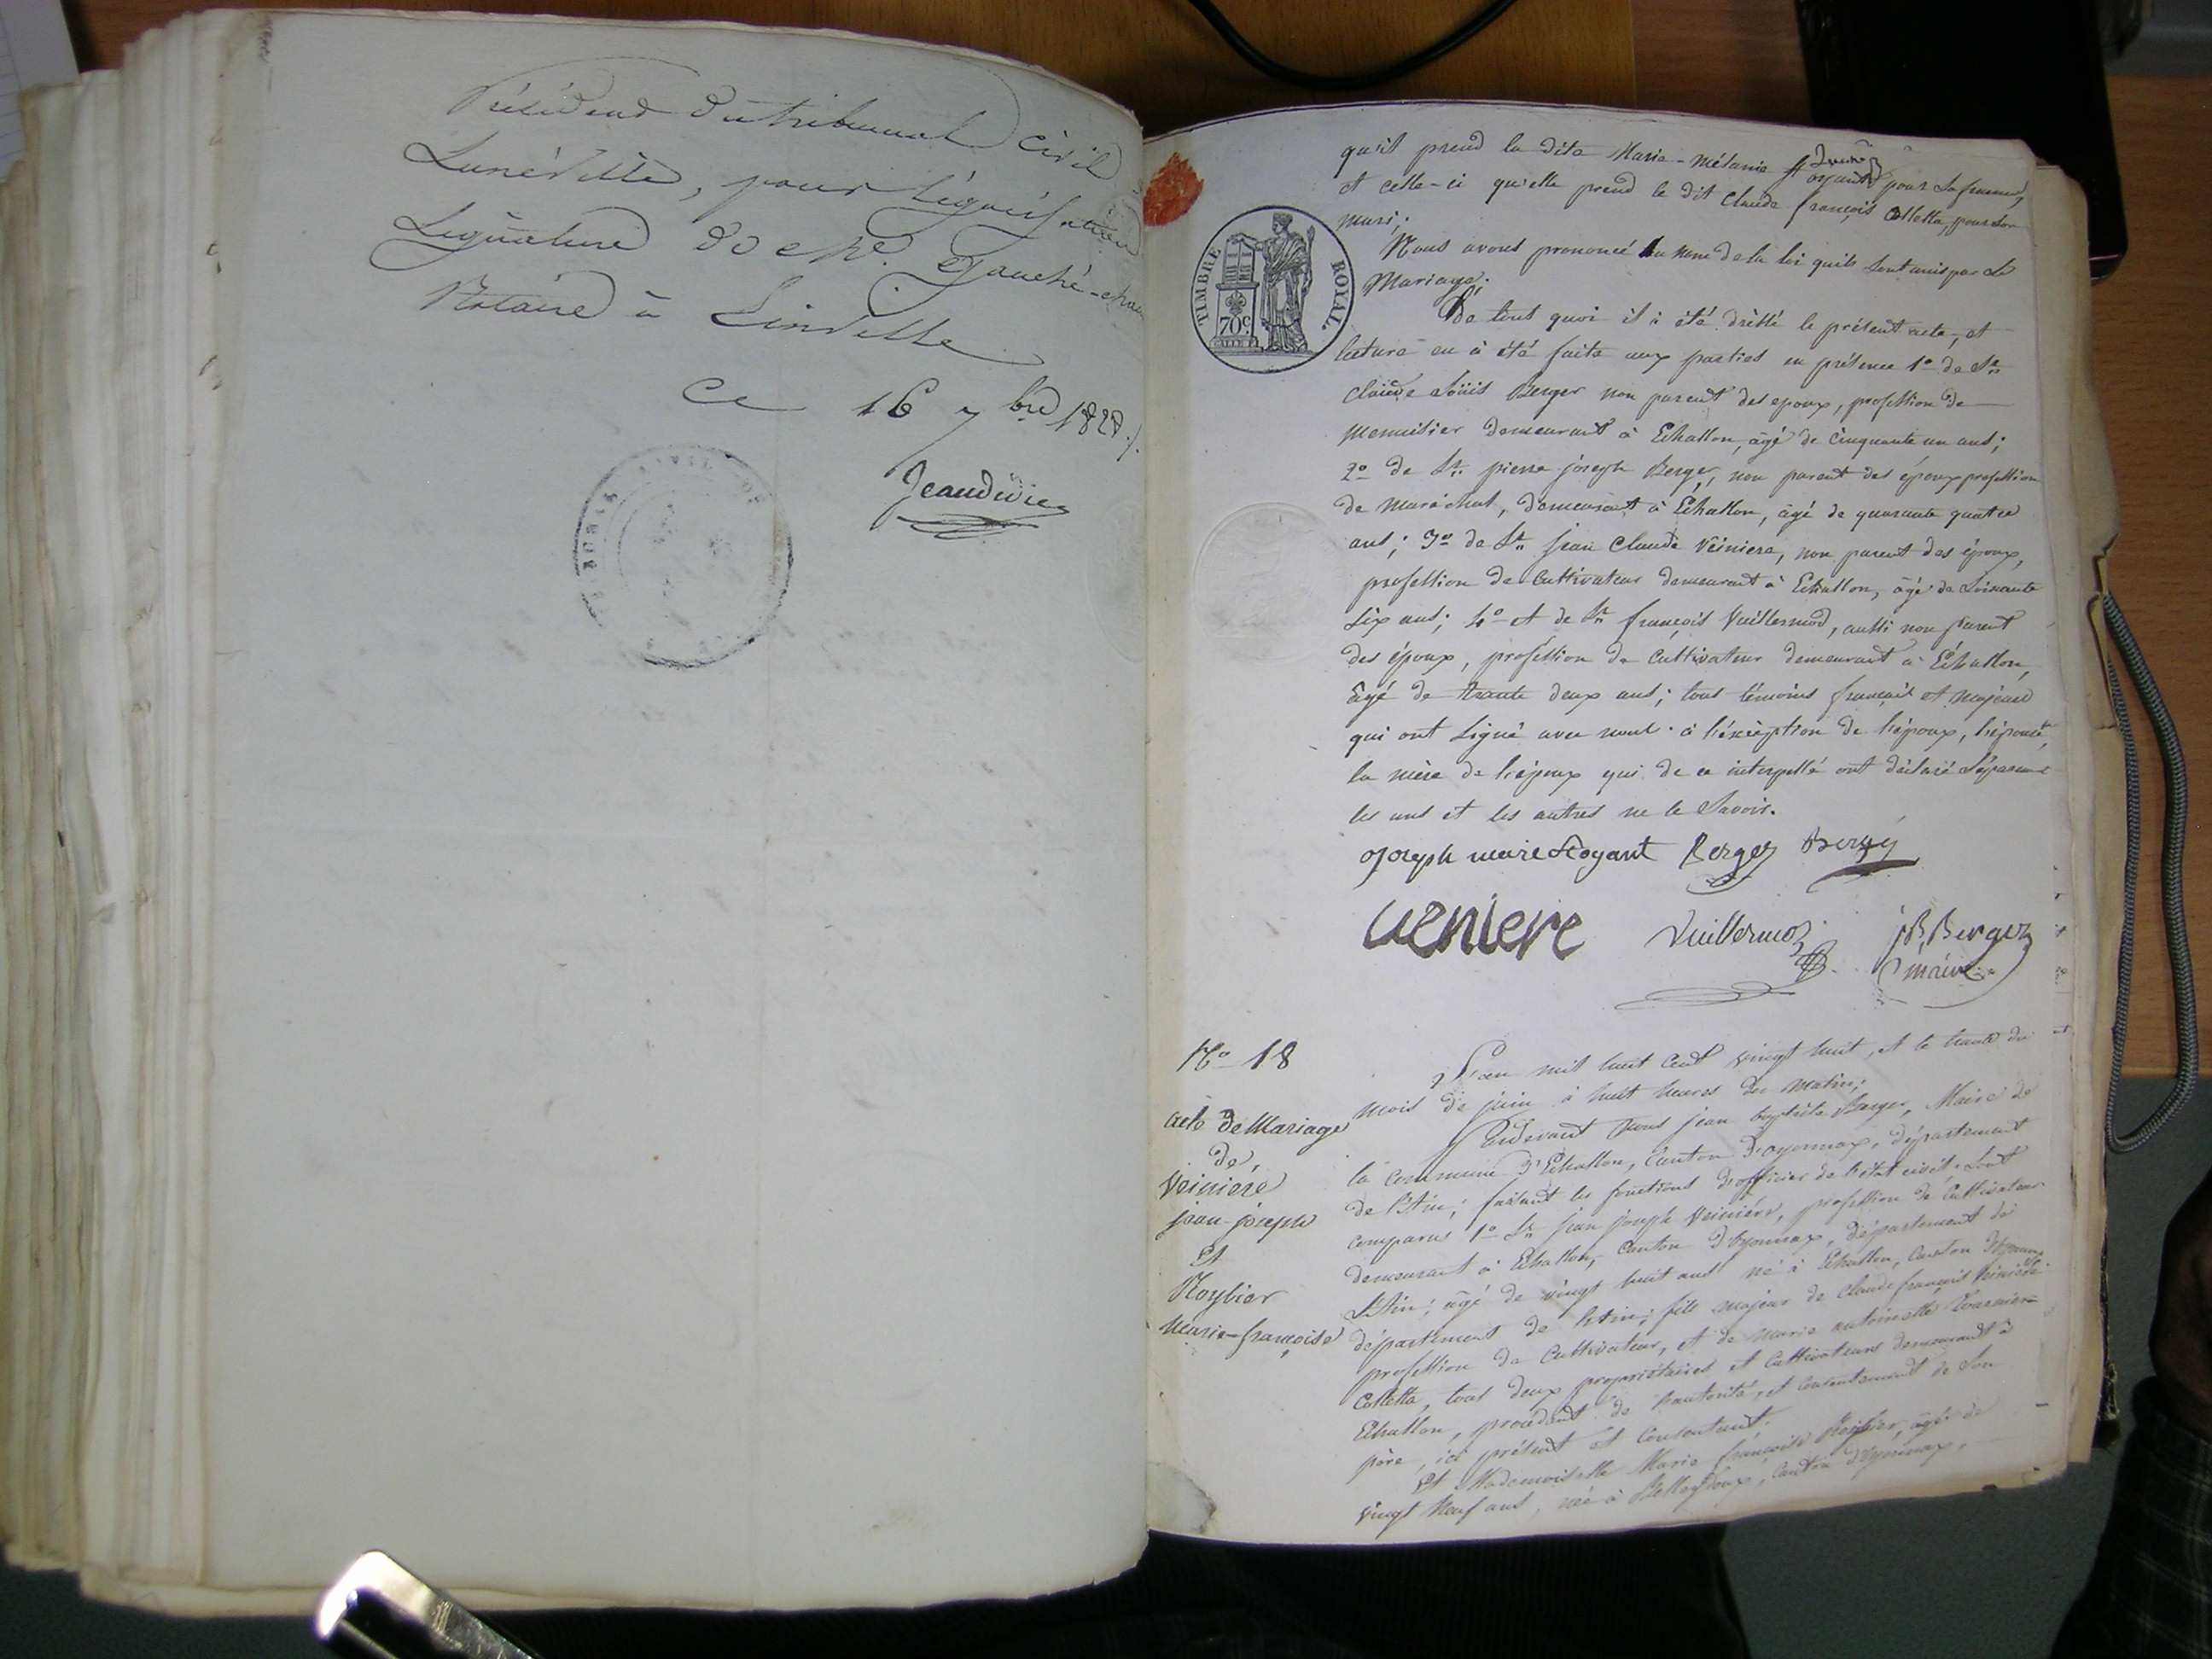 Président du tribunal Civil
Lunéville, pour légalisation
Signature de Me.
Notaire à
Ce 16 7bre 1828
qu'il prend la dite Marie-Mélanie pour sa femme,
et celle-ci qu'elle prend le dit Claude françois Colletta, pour son
mari;
Nous avons prononcé Au nom de la loi quils sont unis par le
Mariage;
TIMBRE ROYAL.
70c
De tout quoi il à été dréssé le présent acte, et
lecture en à été faite aux parties en présence 1o de Sr.
Claude Loüis Berger non parent des epoux, profession de
menuisier demeurant à Echallon, âgé de cinquante un ans;
2o de Sr. pierre joseph Berger, non parent des époux profession
de maréchal, demeurant à Echallon, âgé de quarante quatre
ans; 3o de Sr. jean Claude Veiniere, non parent des époux,
profession de Cultivateur demeurant à Echallon, âgé de soixante
six ans; 4o et de Sr. françois Vuillermod, aussi non parent
des époux, profession de Cultivateur demeurant à Echallon,
âgé de trante deux ans; tous témoins français et majeurs
qui ont signé avec nous à l'éxception de l'époux, l'épouse,
la mère de l'époux qui de ce interpellé ont déclaré
les uns et les autres ne le savoir.
joseph marie Berger Berger
veniere Vuillermoz jB. Berger
maire
No 18
acte de Mariage
de
Veiniere
jean-joseph
Et
Noybier
marie-françoise
L'an mil huit Cent vingt huit, et le trante du
mois de juin à huit heures du matin;
Pardevant Nous jean baptiste Berger, Maire de
la Commune d'Echallon, Canton d'oyonnax, département
de l'Ain; faisant les fonctions d'officier de l'état civil. Sont
comparus 1o Sr. jean joseph Veiniere, profession de Cultivateur
demeurant à Echallon, Canton d'Oyonnax, département de
L'Ain; âgé de vingt huit ans né à Echallon, Canton d'Oyonnax
département de l'Ain; fils majeur de Claude françois Veiniere
profession de Cultivateur, et de marie antoinette
Colletta, tous deux propriétaires et Cultivateurs demeurant à
Echallon, procédant de l'autorité, et Consentement de son
père, ici présent et Consentant.
Et Mademoiselle Marie françoise Noybier, âgée de
vingt Neuf ans, née à Belleydoux, Canton d'Oyonnax,